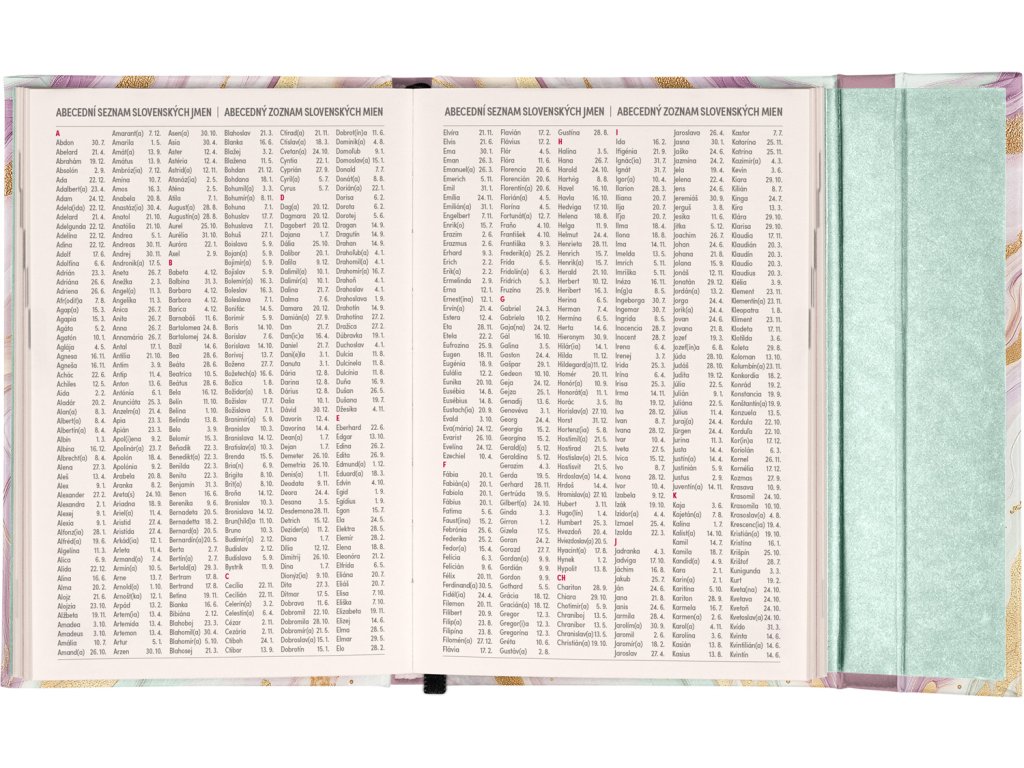 ABECEDNÍ SEZNAM SLOVENSKÝCH JMEN | ABECEDNÝ ZOZNAM SLOVENSKÝCH MIEN
A
Abdon 30. 7.
Abelard 21. 4.
Abrahám 19. 12.
Absolón 2. 9.
Ada 22. 12.
Adalbert(a) 23. 4.
Adam 24. 12.
Adela(ida) 22. 12.
Adelard 21. 4.
Adelgunda 22. 12.
Adelina 22. 12.
Adina 22. 12.
Adolf 17. 6.
Adolfína 6. 6.
Adrián 23. 3.
Adriána 26. 6.
Adriena 26. 6.
Afr(odit)a 7. 8.
Agap(a) 15. 3.
Agapia 15. 3.
Agáta 5. 2.
Agatón 10. 1.
Aglája 4. 5.
Agnesa 16. 11.
Agneša 16. 11.
Achác 22. 6.
Achiles 12. 5.
Aida 2. 2.
Aladár 20. 2.
Alan(a) 8. 3.
Albert(a) 8. 4.
Albertín(a) 8. 4.
Albín 1. 3.
Albína 16. 12.
Albrecht(a) 8. 4.
Alena 27. 3.
Aleš 13. 4.
Alex 9. 1.
Alexander 27. 2.
Alexandra 2. 1.
Alexej 9. 1.
Alexia 9. 1.
Alfonz(ia) 28. 1.
Alfréd(a) 19. 6.
Algelina 11. 3.
Alica 6. 9.
Alida 22. 12.
Alina 16. 6.
Alma 20. 2.
Alojz 21. 6.
Alojzia 23. 10.
Alžbeta 19. 11.
Amadea 3. 10.
Amadeus 3. 10.
Amália 10. 7.
Amand(a) 26. 10.
Amarant(a) 7. 12.
Amarila 1. 5.
Amát(a) 13. 9.
Amátus 13. 9.
Ambróz(ia) 7. 12.
Amína 10. 7.
Amos 16. 3.
Anabela 20. 8.
Anastáz(ia) 30. 4.
Anatol 21. 10.
Anatália 21. 10.
Andrea 5. 1.
Andreas 30. 11.
Andrej 30. 11.
Andronik(a) 17. 5.
Aneta 26. 7.
Anežka 2. 3.
Angel(a) 11. 3.
Angelika 11. 3.
Anica 26. 7.
Anita 26. 7.
Anna 26. 7.
Annamária 26. 7.
Antal 17. 1.
Antília 21. 10.
Antim 3. 9.
Antip 11. 4.
Anton 13. 6.
Antónia 6. 1.
Anunciáta 25. 3.
Anzelm(a) 21. 4.
Apia 23. 3.
Apián 23. 3.
Apol(i)eno 9. 2.
Apolinár(a) 23. 7.
Apolón 18. 4.
Apolónia 9. 2.
Arabela 20. 8.
Aranka 8. 2.
Areta(s) 24. 10.
Ariadna 18. 9.
Ariel(a) 11. 4.
Aristid 27. 4.
Aristída 27. 4.
Arkád(ia) 12. 1.
Arleta 11. 4.
Armand(a) 7. 4.
Armín(a) 10. 5.
Arne 13. 7.
Arnold(a) 1. 10.
Arnošt(ka) 12. 1.
Arpád 13. 2.
Artem(ia) 13. 4.
Artemida 13. 4.
Artemon 13. 4.
Artur 5. 1.
Arzen 30. 10.
Asen(a) 30. 10.
Asia 30. 4.
Aster 12. 4.
Astéria 12. 4.
Astrid(a) 12. 11.
Atanáz(ia) 2. 5.
Aténa 2. 5.
Atila 7. 1.
August(a) 28. 8.
Augustín(a) 28. 8.
Aurel 25. 10.
Aurélia 31. 10.
Auróra 22. 1.
Axel 2. 9.
B
Babeta 4. 12.
Balbína 31. 3.
Barbara 4. 12.
Barbora 4. 12.
Barica 4. 12.
Barnabáš 11. 6.
Bartolomea 24. 8.
Bartolomej 24. 8.
Bazil 14. 6.
Bea 28. 6.
Beáta 28. 6.
Beatrica 10. 5.
Beátus 28. 6.
Bela 16. 12.
Belín 11. 10.
Belina 1. 10.
Belinda 13. 8.
Belo 3. 9.
Belomír 15. 3.
Beňadik 22. 3.
Benedikt(a) 22. 3.
Benilda 22. 3.
Benita 22. 3.
Benjamín 31. 3.
Benon 16. 6.
Berenika 9. 6.
Bernadeta 20. 5.
Bernadetta 18. 2.
Bernard(a) 20. 5.
Bernardín(a) 20. 5.
Berta 2. 7.
Bertín(a) 2. 7.
Bertold(a) 29. 3.
Bertram 17. 8.
Bertrand 17. 8.
Betina 19. 11.
Bianka 16. 6.
Bibiána 2. 12.
Blahoboj 23. 3.
Blahomil(a) 30. 4.
Blahomír(a) 5. 10.
Blahosej 21. 3.
Blahoslav 21. 3.
Blanka 16. 6.
Blažej 3. 2.
Blažena 11. 5.
Bohdan 21. 12.
Bohdana 18. 1.
Bohumil(a) 3. 3.
Bohumír(a) 8. 11.
Bohuna 7. 1.
Bohuslav 17. 7.
Bohuslava 7. 1.
Bohuš 27. 1.
Boislava 5. 9.
Bojan(a) 5. 9.
Bojimír(a) 5. 9.
Bojislav 5. 9.
Bolemír(a) 16. 3.
Boleslav 16. 3.
Boleslava 7. 1.
Bonifác 14. 5.
Borimír 5. 9.
Boris 14. 10.
Borislav 7. 6.
Borislava 14. 10.
Borivoj 13. 7.
Božena 27. 7.
Božetech(a) 16. 6.
Božica 1. 8.
Božidar(a) 1. 8.
Božislav 17. 7.
Božislava 7. 1.
Branimír(a) 5. 9.
Branislav 10. 3.
Branislava 14. 12.
Bratislav(a) 10. 3.
Brenda 15. 5.
Bria(n) 6. 9.
Brigita 8. 10.
Brit(a) 8. 10.
Broňa 14. 12.
Bronislav 10. 3.
Bronislava 14. 12.
Brun(hild)a 11. 10.
Bruno 10. 3.
Budimír(a) 2. 12.
Budislav 2. 12.
Budislava 5. 9.
Bystrík 11. 9.
C
Cecília 22. 11.
Cecilián 22. 11.
Celerín(a) 3. 2.
Celestín(a) 6. 4.
Cézar 22. 11.
Cezária 2. 11.
Ctiboh 24. 1.
Ctibor 13. 9.
Ctirad(a) 21. 11.
Ctislav(a) 18. 3.
Cvetan(a) 24. 10.
Cyntia 22. 1.
Cyprián 27. 9.
Cyril(a) 5. 7.
Cyrus 5. 7.
D
Dag(a) 20. 12.
Dagmara 20. 12.
Dagobert 20. 12.
Dajana 1. 7.
Dália 25. 10.
Dalibor 20. 1.
Dalila 9. 12.
Dalimil(a) 10. 1.
Dalimír(a) 10. 1.
Dalina 21. 7.
Dalma 7. 6.
Damara 20. 12.
Damián(a) 27. 9.
Dan 21. 7.
Dan(ic)a 16. 4.
Daniel 21. 7.
Dani(e)la 3. 1.
Danuta 3. 1.
Dária 12. 8.
Darina 12. 8.
Dárius 12. 8.
Daša 10. 1.
Dávid 30. 12.
Davorín 12. 4.
Davorína 14. 4.
Dean(a) 1. 7.
Dejan 10. 2.
Demeter 26. 10.
Demetria 26. 10.
Denis(a) 1. 11.
Deodata 9. 11.
Deora 24. 4.
Desana 3. 5.
Desdemona 28. 11.
Detrich 15. 12.
Dezider(a) 11. 2.
Diana 1. 7.
Dília 12. 12.
Dimitrij 26. 10.
Dina 1. 7.
Dionýz(ia) 9. 10.
Dita 27. 3.
Ditmar 17. 5.
Dobrava 11. 6.
Dobromil 22. 10.
Dobromila 28. 10.
Dobromír(a) 21. 5.
Dobroslav(a) 15. 1.
Dobrotín 15. 1.
Dobrot(in)a 11. 6.
Dominik(a) 4. 8.
Domoľub 9. 1.
Domoslav(a) 15. 1.
Donald 7. 7.
Donát(a) 8. 8.
Dorián(a) 22. 1.
Dorisa 6. 2.
Dorota 6. 2.
Dorotej 5. 6.
Dragan 14. 9.
Dragutín 14. 9.
Drahan 14. 9.
Drahoľub(a) 4. 1.
Drahomil(a) 4. 1.
Drahomír(a) 16. 7.
Drahoň 4. 1.
Drahoslav 4. 1.
Drahoslava 1. 9.
Drahotín 14. 9.
Drahotína 27. 2.
Dražica 27. 2.
Dúbravka 19. 1.
Duchoslav 4. 1.
Dulcia 11. 8.
Dulcinela 11. 8.
Dulcínia 11. 8.
Duňa 16. 9.
Dušan 26. 5.
Dušana 19. 7.
Džesika 4. 11.
E
Eberhard 22. 6.
Edgar 13. 10.
Edina 26. 9.
Edita 26. 9.
Edmund(a) 1. 12.
Eduard(a) 18. 3.
Edvin 4. 10.
Egid 1. 9.
Egídius 1. 9.
Egon 15. 7.
Ela 24. 5.
Elektra 28. 5.
Elemír 28. 2.
Elena 18. 8.
Eleonóra 21. 2.
Elfrída 6. 5.
Eliána 20. 7.
Eliáš 20. 7.
Elisa 7. 10.
Eliška 7. 10.
Elizabeta 19. 11.
Elizej 14. 6.
Elma 28. 5.
Elmar 29. 5.
Elo 28. 2.
ABECEDNÍ SEZNAM SLOVENSKÝCH JMEN | ABECEDNÝ ZOZNAM SLOVENSKÝCH MIEN
Elvíra 21. 11.
Elvis 21. 6.
Ema 30. 1.
Eman 26. 3.
Emanuel(a) 26. 3.
Emerich 5. 11.
Emil 31. 1.
Emília 24. 11.
Emilián(a) 31. 1.
Engelbert 7. 11.
Enrik(o) 15. 7.
Erazim 2. 6.
Erazmus 2. 6.
Erhard 9. 3.
Erich 2. 2.
Erik(a) 2. 2.
Ermelinda 2. 9.
Erna 12. 1.
Ernest(ína) 12. 1.
Ervín(a) 21. 4.
Estera 12. 4.
Eta 28. 11.
Etela 22. 2.
Eufrozína 25. 9.
Eugen 18. 11.
Eugénia 18. 9.
Eulália 12. 2.
Eunika 20. 10.
Eusébia 14. 8.
Eusébius 14. 8.
Eustach(ia) 20. 9.
Evald 3. 10.
Eva(mária) 24. 12.
Evarist 26. 10.
Evelína 24. 12.
Ezechiel 10. 4.
F
Fábia 20. 1.
Fabián(a) 20. 1.
Fabiola 20. 1.
Fábius 20. 1.
Fatima 5. 6.
Faust(ína) 15. 2.
Febrónia 25. 6.
Federika 25. 2.
Fedor(a) 15. 4.
Felícia 6. 3.
Felicián 9. 6.
Félix 20. 11.
Ferdinand(a) 30. 5.
Fidél(ia) 24. 4.
Filemon 20. 11.
Filibert 20. 9.
Filip(a) 23. 8.
Filipína 23. 8.
Filomén(a) 27. 12.
Flávia 17. 2.
Flavián 17. 2.
Flávius 17. 2.
Flór 4. 5.
Flóra 11. 6.
Florencia 20. 6.
Florencián 20. 6.
Florentín(a) 20. 6.
Florián(a) 4. 5.
Florína 4. 5.
Fortunát(a) 12. 7.
Fraňo 4. 10.
František 4. 10.
Františka 9. 3.
Frederik(a) 25. 2.
Frída 6. 5.
Fridolín(a) 6. 3.
Fridrich 5. 3.
Fruzína 25. 9.
G
Gabriel 24. 3.
Gabriela 10. 2.
Gaja(na) 24. 12.
Gál 16. 10.
Galina 3. 5.
Gaston 24. 4.
Gašpar 29. 1.
Gedeon 10. 10.
Geja 24. 12.
Gejza 25. 1.
Genadij 13. 6.
Genovéva 3. 1.
Georg 24. 4.
Georgia 15. 2.
Georgína 15. 2.
Gerald(a) 5. 12.
Geraldína 5. 12.
Gerazim 4. 3.
Gerda 19. 5.
Gertrúda 19. 5.
Gilbert(a) 24. 10.
Ginda 3. 3.
Girron 1. 2.
Gizela 17. 5.
Goran 24. 2.
Gorazd 27. 7.
Gordan(a) 9. 9.
Gordián 9. 9.
Gordon 9. 9.
Gothard 5. 5.
Grácia 18. 12.
Gracián(a) 18. 12.
Gregor 12. 3.
Gregor(i)a 12. 3.
Gregorína 12. 3.
Gréta 10. 6.
Gustáv(a) 2. 8.
Gustína 28. 8.
H
Halina 3. 5.
Hana 26. 7.
Harold 24. 10.
Hartvig 8. 8.
Havel 16. 10.
Havla 16. 10.
Hedviga 17. 10.
Helena 18. 8.
Helga 11. 9.
Helmut 24. 4.
Henrieta 28. 11.
Henrich 15. 7.
Henrik(a) 15. 7.
Herald 21. 10.
Herbert 10. 12.
Heribert 16. 3.
Herina 6. 5.
Herman 7. 4.
Hermína 6. 5.
Herta 14. 6.
Hieronym 30. 9.
Hilár(ia) 14. 1.
Hilda 11. 12.
Hildegard(a) 11. 12.
Homér 20. 11.
Honór(a) 10. 9.
Honorát(a) 11. 1.
Horác 3. 5.
Horislav(a) 27. 10.
Horst 31. 12.
Hortenz(ia) 5. 8.
Hostimil(a) 21. 5.
Hostirad 21. 5.
Hostislav(a) 21. 5.
Hostisvit 21. 5.
Hrdoslav(a) 14. 4.
Hrdoš 14. 4.
Hromislav(a) 27. 10.
Hubert 3. 11.
Hugo(lín) 1. 4.
Humbert 25. 3.
Hvezdoň 20. 4.
Hviezdoslav(a) 20. 5.
Hyacint(a) 17. 8.
Hynek 1. 2.
Hypolit 13. 8.
CH
Chariton 28. 9.
Chiara 29. 10.
Chotimír(a) 5. 9.
Chraniboj 13. 5.
Chranibor 13. 5.
Chranislav(a) 13. 5.
Christián(a) 19. 10.
I
Ida 16. 2.
Ifigénia 21. 9.
Ignác(ia) 31. 7.
Ignát 31. 7.
Igor(a) 10. 4.
Ilarion 28. 3.
Iliana 20. 7.
Ilija 20. 7.
Iľja 20. 7.
Ilma 18. 4.
Ilona 18. 8.
Ima 14. 11.
Imelda 13. 5.
Imrich 5. 11.
Imriška 5. 11.
Inéza 16. 11.
In(g)a 8. 5.
Ingeborga 30. 7.
Ingemar 30. 7.
Ingrida 8. 5.
Inocencia 28. 7.
Inocent 28. 7.
Irena 6. 4.
Irenej 3. 7.
Irida 25. 3.
Irína 6. 4.
Irisa 25. 3.
Irma 14. 11.
Ita 19. 12.
Iva 28. 12.
Ivan 8. 7.
Ivana 28. 12.
Ivar 10. 4.
Iveta 27. 5.
Ivica 15. 12.
Ivo 8. 7.
Ivona 28. 12.
Ivor 10. 4.
Izabela 9. 12.
Izák 19. 10.
Izidor(a) 4. 4.
Izmael 25. 4.
Izolda 22. 2.
J
Jadranka 4. 3.
Jadviga 17. 10.
Jáchim 16. 8.
Jakub 25. 7.
Ján 24. 6.
Jana 21. 8.
Janis 24. 6.
Jarmila 28. 4.
Jarolím(a) 30. 9.
Jaromil 2. 6.
Jaromír(a) 18. 2.
Jaroslav 27. 4.
Jaroslava 26. 4.
Jasna 30. 1.
Jaško 24. 6.
Jazmína 24. 2.
Jela 19. 4.
Jelena 22. 4.
Jens 24. 6.
Jeremiáš 30. 9.
Jerguš 3. 8.
Jesika 11. 6.
Jitka 5. 12.
Joachim 26. 7.
Johan 24. 6.
Johana 21. 8.
Jolana 15. 9.
Jonáš 12. 11.
Jonatán 29. 12.
Jordán(a) 13. 2.
Jorga 24. 4.
Jorik(a) 24. 4.
Jovan 24. 6.
Jovana 21. 8.
Jozef 19. 3.
Jozef(ín)a 6. 8.
Júda 28. 10.
Judáš 28. 10.
Judita 10. 12.
Júlia 22. 5.
Julián 9. 1.
Juliána 22. 5.
Július 11. 4.
Juraj(a) 24. 4.
Jürgen 24. 4.
Jurina 11. 3.
Justa 14. 4.
Justín(a) 14. 4.
Justinián 5. 9.
Justus 2. 9.
Juventín(a) 14. 11.
K
Kaja 3. 6.
Kajetán(a) 7. 8.
Kalina 1. 7.
Kalist(a) 14. 10.
Kamil 14. 7.
Kamila 5. 7.
Kandid(a) 4. 9.
Kara 2. 1.
Karin(a) 2. 1.
Karitína 5. 10.
Kariton 28. 9.
Karmela 16. 7.
Karmen(a) 2. 6.
Karol(a) 4. 11.
Karolína 3. 6.
Kasián 13. 8.
Kasius 13. 8.
Kastor 7. 7.
Katarína 25. 11.
Katrina 25. 11.
Kazimír(a) 4. 3.
Kevin 3. 6.
Kiara 29. 10.
Kilián 8. 7.
Kinga 24. 7.
Kira 13. 3.
Klára 29. 10.
Klarisa 29. 10.
Klaudia 17. 11.
Klaudián 20. 3.
Klaudín 20. 3.
Klaudio 20. 3.
Klaudius 20. 3.
Klélia 3. 9.
Klement 23. 11.
Klementín(a) 23. 11.
Kleopatra 1. 8.
Kliment 23. 11.
Klodeta 17. 11.
Klotilda 3. 6.
Koleta 29. 8.
Koloman 13. 10.
Kolumbín(a) 23. 11.
Konkordia 18. 2.
Konrád 19. 2.
Konstancia 19. 9.
Konštantín(a) 19. 9.
Konzuela 13. 5.
Kordula 22. 10.
Korduľa 22. 10.
Kor(in)a 17. 12.
Koriolán 6. 3.
Kornel 26. 11.
Kornélia 17. 12.
Kozmas 27. 9.
Krasava 10. 9.
Krasomil 24. 10.
Krasomila 10. 10.
Krasoslav(a) 4. 8.
Krescenc(ia) 19. 4.
Kristián(a) 19. 10.
Kristína 16. 1.
Krišpín 25. 10.
Krištof 28. 7.
Kunigunda 3. 3.
Kurt 19. 2.
Kveta(na) 24. 10.
Kvetava 24. 10.
Kvetoň 24. 10.
Kvetoslav(a) 24. 10.
Kvido 31. 3.
Kvinta 14. 6.
Kvintilián(a) 14. 6.
Kvintín 14. 6.